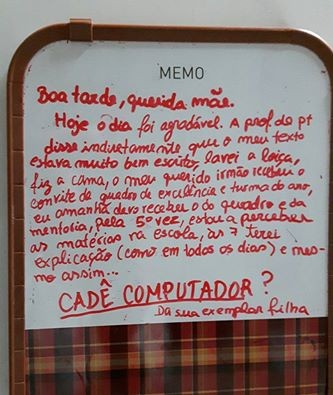 MEMO
Boa tarde, querida mãe.
Hoje o dia foi agradável. A prof de pt
disse indiretamente que o meu texto
estava muito bem escrito, lavei a loiça,
fiz a cama, o meu querido irmão recebeu o
convite de quadro de excelência e turma do ano,
eu amanhã devo receber o do quadro e da
mentoria, pela 5ª vez, estou a perceber
as matérias na escola, às 7 terei
explicação (como em todos os dias) e mes-
mo assim...
CADÊ COMPUTADOR?
Da sua exemplar filha